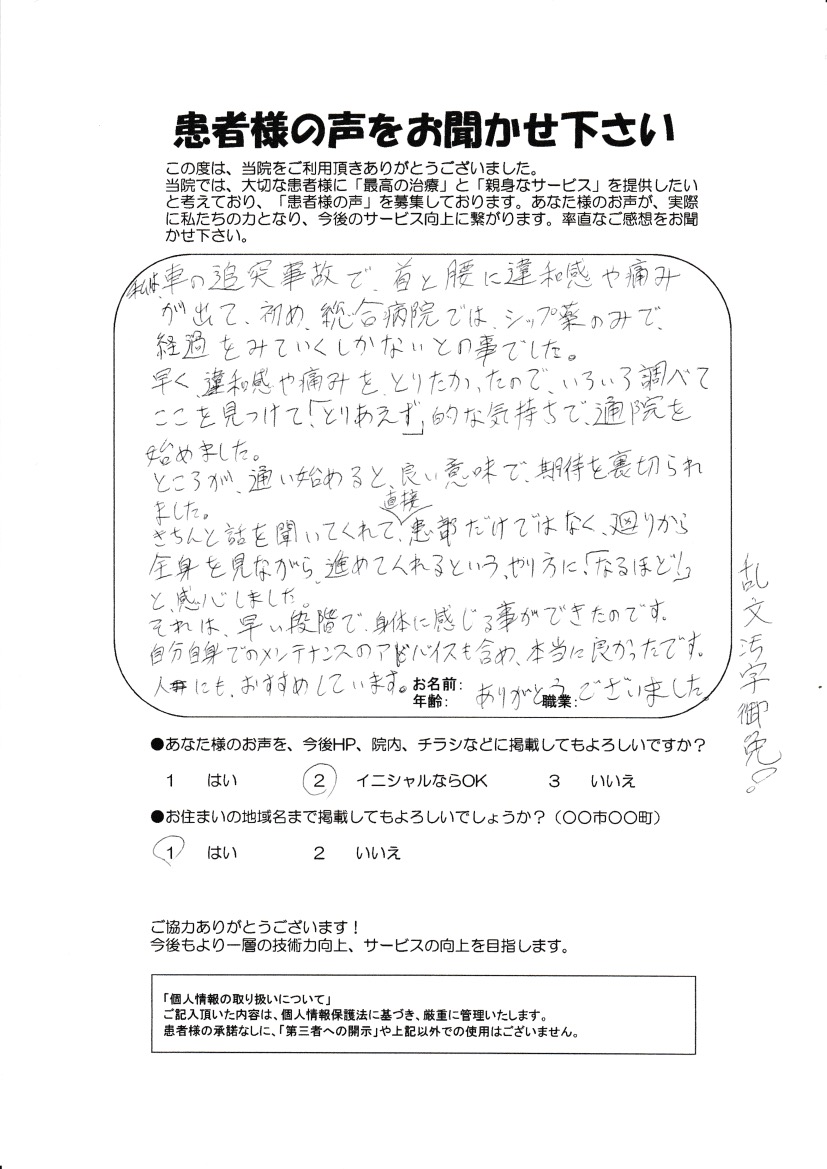 患者様の声をお聞かせ下さい
この度は、当院をご利用頂きありがとうございました。
当院では、大切な患者様に「最高の治療」と「親身なサービス」を提供したい
と考えており、「患者様の声」を募集しております。あなた様のお声が、実際
に私たちの力となり、今後のサービス向上に繋がります。率直なご感想をお聞
かせ下さい。
私は、車の追突事故で、首と腰に違和感や痛み
が出て、初め、総合病院では、シップ薬のみで、
経過をみていくしかないとの事でした。
早く、違和感や痛みを、とりたかったので、いろいろ調べて
ここを見つけて、「とりあえず」的な気持ちで、通院を
始めました。
ところが、通い始めると、良い意味で、期待を裏切られ
ました。
きちんと話を聞いてくれて、直接患部だけではなく、廻りから
全身を見ながら、進めてくれるという、やり方に、「なるほど!」
と、感心しました。
それは、早い段階で、身体に感じる事ができたのです。
自分自身でのメンテナンスのアドバイスも含め、本当に良かったです。
人にも、おすすめしています。
お名前:
年齢: 職業:
ありがとうございました。
乱文汚字御免!
●あなた様のお声を、今後HP、院内、チラシなどに掲載してもよろしいですか?
1 はい 2 イニシャルならOK 3 いいえ
●お住まいの地域名まで掲載してもよろしいでしょうか?(〇〇市〇〇町)
1 はい 2 いいえ
ご協力ありがとうございます!
今後もより一層の技術力向上、サービスの向上を目指します。
「個人情報の取り扱いについて」
ご記入頂いた内容は、個人情報保護法に基づき、厳重に管理いたします。
患者様の承諾なしに、「第三者への開示」や上記以外での使用はございません。